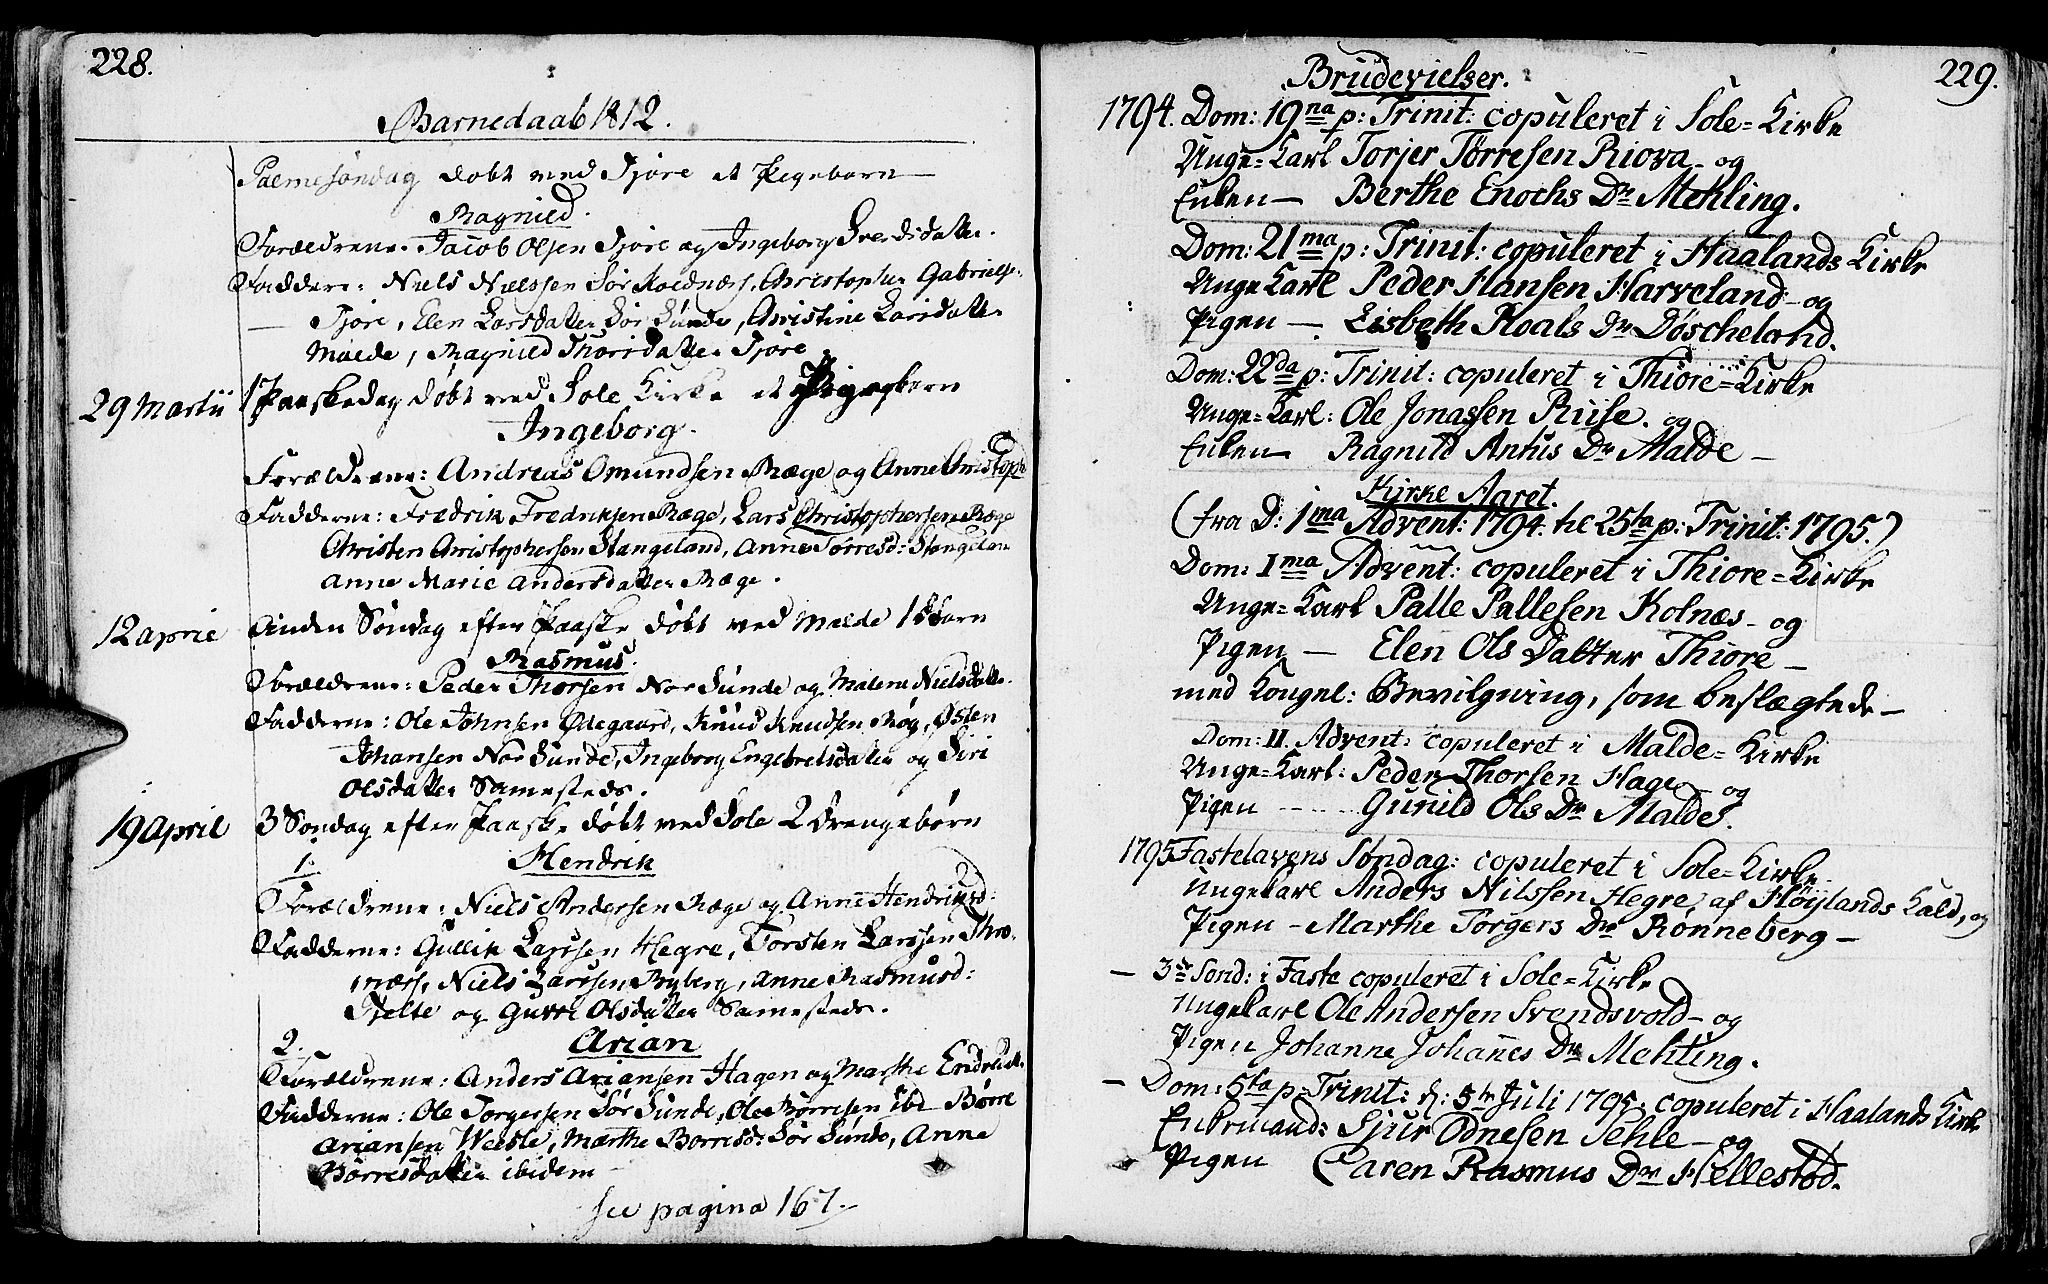 228.
Barnedaab 1812.
Palmesøndag døbt ved Tjore et Pigebarn
Ragnild.
Forældrene. Jacob Olsen Tjore og Ingeborg Svendsdatter.
Faddere: Niels Nielssen Sør Kolnæs, Christopher Gabrielse:
Tjore, Elen Larsdatter Sør Sunde, Christine Larsdatter
Malde, Ragnild Thorsdatter Tjore
29 Martii 1 Paaskedag døbt ved Sole Kirke et Pigebarn
Ingeborg.
Forældrene: Andreas Omundsen Ræge og Anne Christoph
Fadderne: Fredrik Fredriksen Ræge, Lars Christophersen Ræge
Christen Christophersen Stangeland, Anne Tørresd: Stangelan
Anne Marie Andersdatter Ræge.
12 april Anden Søndag efter Paaske døbt ved Malde 1 Barn
Rasmus.
Forældrene: Peder Thorsen Nor Sunde og Malene Nielsdatter.
Fadderne: Ole Johnsen Ødegaard, Knud Knudsen Røg, Østen
Johansen Nor Sunde, Ingeborg Engebretsdatter og Siri
Olsdatter Sammesteds.
19 April 3 Søndag efter Paaske døbt ved Sole 2 Drengebørn
1. Hendrik
Forældrene: Niels Andersen Ræge og Anne Hendriksd:
Fadderne: Gullik Larssen Hegre, Torsten Larssen
Niels Larssen Ryberg, Anne Rasmusd:
Tjelte og Guri Olsdatter Sammesteds.
2. Arian
Forældrene: Anders Ariansen Hagen og Marthe
Fadderne: Ole Torgersen Sør Sunde, Ole Børresen ibd Børre
Ariansen Marthe Børresd: Sør Sunde, Anne
Børresdatter ibidem
see pagina 167.
229.
Brudevielser.
1794. Dom: 19na p: Trinit: copuleret i Sole=Kirke
Unge=Karl Torjer Tørresen Riova - og
Enken — Berthe Enochs Dr Mehling.
Dom: 21ma p: Trinit: copuleret i Haalands Kirke
Unge Karl Peder Hansen Harveland - og
Pigen — Lisbeth Roals Dr Døscheland.
Dom: 22da p: Trinit: copuleret i Thiore=Kirke
Unge=Karl: Ole Jonassen Riise. og
Enken Ragnild Antus Dr Malde —
Kirke Aaret.
(fra D: 1ma Advent: 1794. til 25ta p: Trinit: 1795.)
Dom: 1ma Advent: copuleret i Thiore=Kirke
Unge=Karl Palle Pallesen Kolnæs - og
Pigen — Elen Ols Datter Thiore —
med Kongel: Bevilgning, som beslægtede —
Dom: II. Advent: copuleret i Malde=Kirke
Unge=Karl: Peder Thorsen Hage - og
Pigen - - - - Gunild Ols Dr Malde.
1795 Fastelavens Søndag: copuleret i Sole=Kirke
Ungekarl Anders Nilssen Hegre, af Høÿlands Kald, og
Pigen - Marthe Torgers Dr Rønneberg —
— 3de Sønd: i Faste copuleret i Sole=Kirke
Ungekarl Ole Andersen Svendsvold - og
Pigen Johanne Johañes Dr Mehling.
— Dom: 5ta p: Trinit: d: 5te Juli 1795. copuleret i Haalands Kirke
Enkemand: Sjur Odnesen Sehle - og
Pigen Caren Rasmus Dr Hellestød.